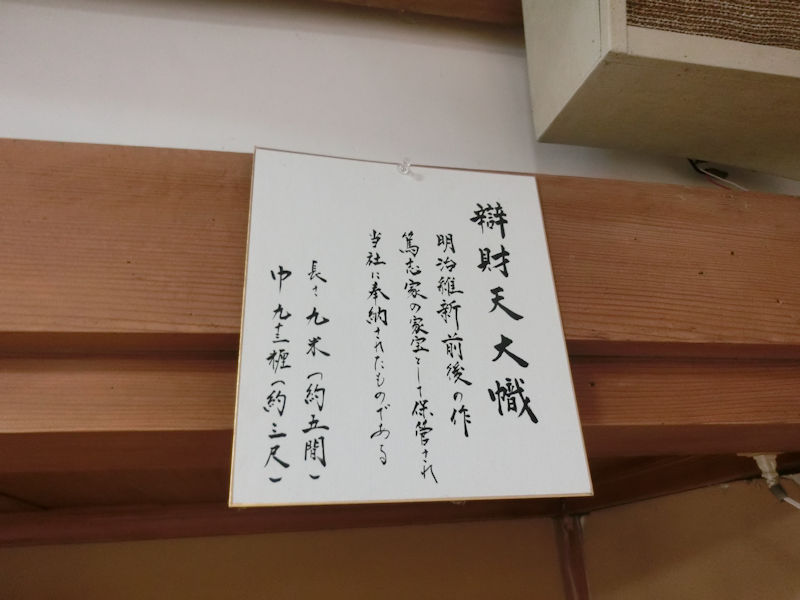 辯財天大幟
明治維新前後の作
篤志家の家宝として保管され
当社に奉納されたものである
長さ九米(約五間)
巾九十三糎(約三尺)